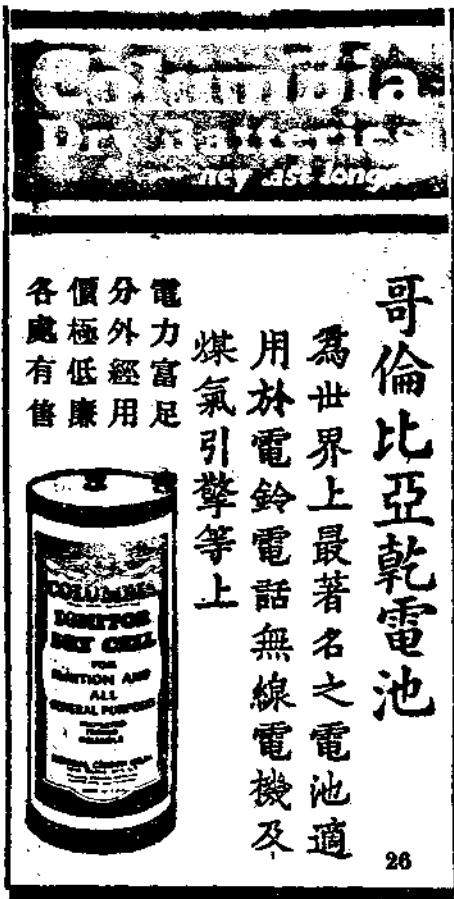 Columbia
Dry Batteries
哥倫比亞乾電池
為世界上最著名之電池適
用於電鈴電話無線電機及
煤氣引擎等上
電力富足
分外經用
價極低廉
各處有售
COLUMBIA
IGNITOR
DRY CELL
FOR
IGNITION AND
ALL
GENERAL PURPOSES
26